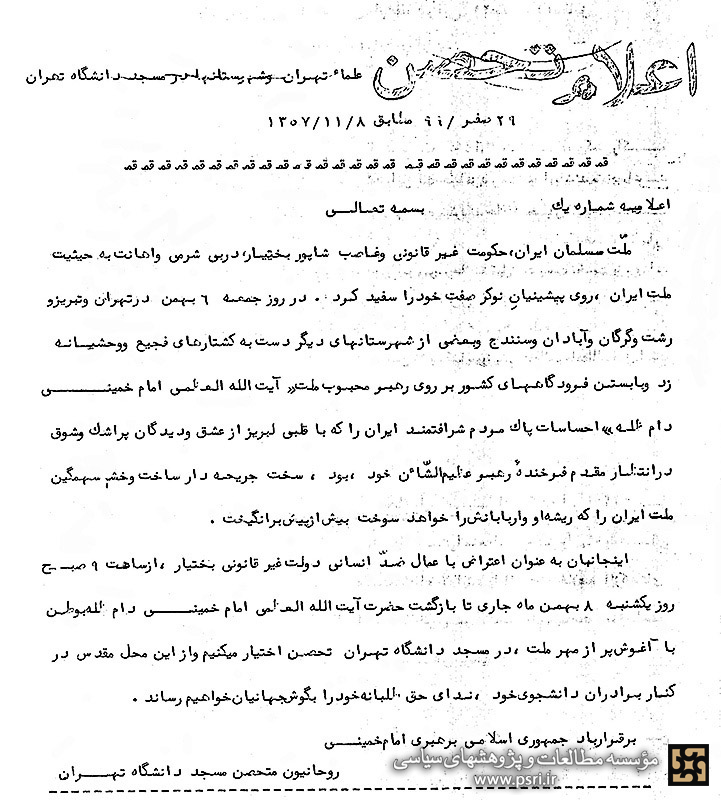 اعلام تحصن علماء تهران وشهرستانها در مسجد دانشگاه تهران
۲۹ صفر / ۹۹ مطابق ۱۳۵۷/۱۱/۸
قم قم قم قم قم قم قم قم قم قم قم قم قم قم قم قم قم قم قم قم قم قم قم قم قم قم قم قم
اعلامیه شماره یك بسمه تعالی
ملّت مسلمان ایران، حکومت غیر قانونی وغاصب شاپور بختیار، دربی شرمی واهانت به حیثیت
ملت ایران ، روی پیشینیان نوکر صفت خودرا سفید کرد . در روز جمعه ۶ بهمن درتهران وتبریزو
رشت وگرگان وآبادان وسنندج وبعضی از شهرستانهای دیگر دست به کشتارهای فجیع ووحشیانه
زد وبابستن فرودگاههای کشور بر روی رهبر محبوب ملت« آیت الله العظمی امام خمینی
دام ظله» احساسات پاك مردم شرافتمند ایران را که با قلبی لبریز از عشق ودیدگان پراشك وشوق
درانتظار مقدم فرخندهٔ رهبر عظیم‌الشّأن خود ،بود ، سخت جریحه دار ساخت وخشم سهمگین
ملت ایران را که ریشه‌او واربابانش‌را خواهد سوخت بیش‌از‌پیش‌برانگیخت .
اینجانبان به عنوان اعتراض با عمال ضدّ انسانی دولت غیر قانونی بختیار ،ازساعت ۹ صبح
روز یکشنبه ۸ بهمن ماه جاری تا بازگشت حضرت آیت الله العظمی امام خمینی دام ظله‌بوطن
با آغوش‌پر از مهر ملت ،در مسجد دانشگاه تهران تحصن اختیار میکنیم واز این محل مقدس در
کنار برادران دانشجوی‌خود ،ندای حق طلبانه‌خودرا بگوش‌جهانیان‌خواهیم رساند .
برقرارباد جمهوری اسلامی برهبری امام‌خمینی
روحانیون متحصن مسجد دانشگاه تهران
مؤسسه مطالعات و پژوهشهای سیاسی
www.psri.ir